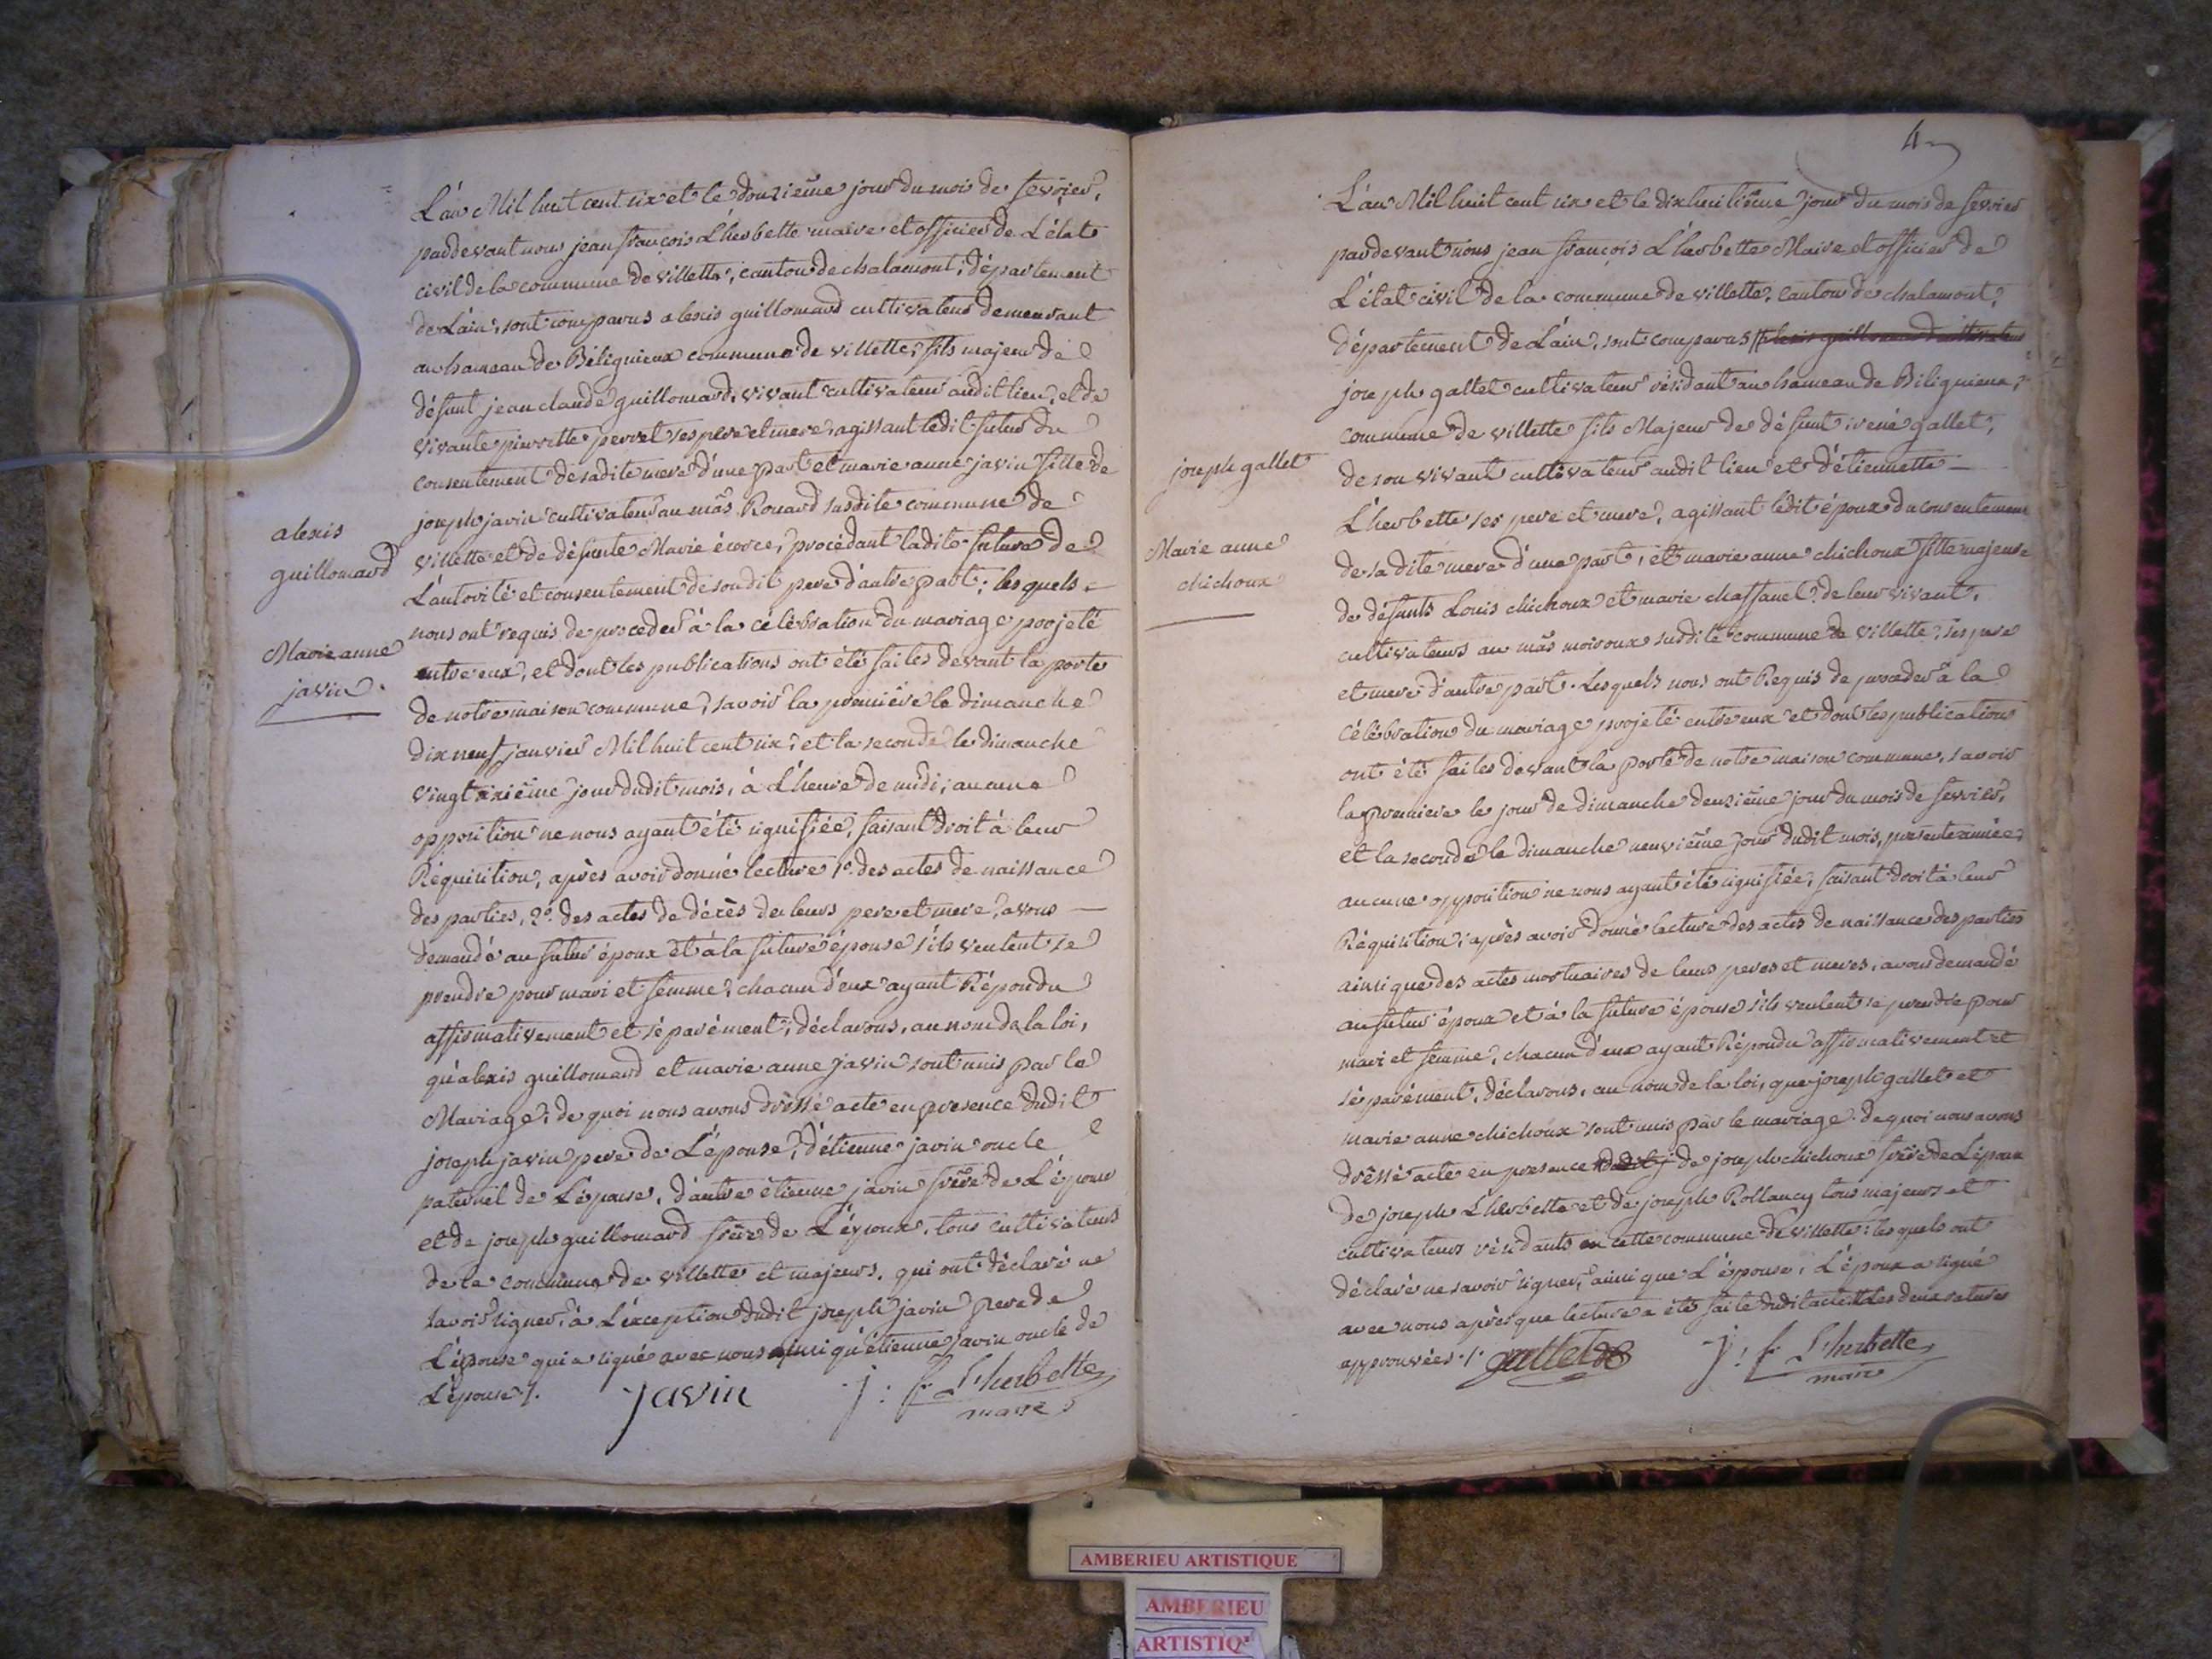 L'an Mil huit cent six et le douzième jour du mois de fevrier,
pardevant nous jean françois L'herbette maire et officier de L'état
civil de la commune de villette, canton de chalamont, département
de L'ain, sont comparus alexis guillomard cultivateur demeurant
au hameau de Bélignieux commune de villette, fils majeur de
défunt jean claude guillomard, vivant cultivateur audit lieu, et de
vivante pierrette perret ses pere et mere, agissant ledit futur du
consentement de sadite mere d'une part et marie anne javin fille de
joseph javin cultivateur au mâs Rouard susdite commune de
villette et de défunte Marie écorce, procédant ladite future de
L'autorité et consentement de son dit pere d'autre part ; lesquels
nous ont requis de proceder à la célébration du mariage projeté
entre eux, et dont les publications ont été faites devant la porte
de notre maison commune, savoir la première le dimanche
dix neuf janvier Mil huit cent six, et la seconde le dimanche
vingt sixième jour dudit mois, à L'heure de midi, aucune
opposition ne nous ayant été signifiée, faisant droit à leur
Réquisition, après avoir donné lecture 1°. des actes de naissance
des parties, 2°. des actes de décès de leurs pere et mere, avons —
demandé au futur époux et à la future épouse s'ils veulent se
prendre pour mari et femme, chacun d'eux ayant Répondu
affirmativement et séparément, déclarons, au nom de la loi,
qu'alexis guillomard et marie anne javin sont unis par le
Mariage, de quoi nous avons dressé acte en presence dudit
joseph javin pere de L'épouse, d'étienne javin oncle
paternel de L'épouse, d'autre étienne javin frère de L'épouse
et de joseph guillomard frère de L'époux, tous cultivateurs
de la commune de villette et majeurs, qui ont déclaré ne
savoir signer, à L'exception dudit joseph javin pere de
L'épouse qui a signé avec nous ainsi qu'étienne javin oncle de
L'épouse ./.
javin
j : f L'herbette
maire
alexis
guillomard
Marie anne
javin.
4
L'an Mil huit cent six et le dix huitième jour du mois de fevrier
pardevant nous jean françois L'herbette Maire et officier de
L'état civil de la commune de villette, canton de chalamont,
département de L'ain, sont comparus alexis guillomard cultivateur
joseph gallet cultivateur résidant au hameau de Biligneux,
commune de villette fils Majeur de défunt rené gallet,
de son vivant cultivateur audit lieu et d'étiennette —
L'herbette ses pere et mere, agissant ledit époux du consentement
de sa dite mere d'une part, et marie anne chichoux fille majeure
de défunts Louis chichoux et marie chaffanet de leur vivant,
cultivateurs au mâs moiroux susdite commune de villette, ses pere
et mere d'autre part. Lesquels nous ont Requis de proceder à la
célébration du mariage projeté entre eux et dont les publications
ont été faites devant la porte de notre maison commune, savoir
la premiere le jour de dimanche deuxième jour du mois de fevrier,
et la seconde le dimanche neuvième jour dudit mois, presente année,
aucune opposition ne nous ayant été signifiée, faisant droit à leur
Réquisition, après avoir donné lecture des actes de naissance des parties
ainsi que des actes mortuaires de leurs peres et meres, avons demandé
au futur époux et à la future épouse s'ils veulent se prendre pour
mari et femme, chacun d'eux ayant Répondu affirmativement et
séparément, déclarons, au nom de la loi, que joseph gallet et
marie anne chichoux sont unis par le mariage. de quoi nous avons
dressé acte en presence dudit j de joseph chichoux frère de L'épouse
de joseph L'herbette et de joseph Rollancy tous majeurs et
cultivateurs résidants en cette commune de villette : lesquels ont
déclaré ne savoir signer, ainsi que L'épouse, L'époux a signé
avec nous après que lecture a été faite dudit acte les deux ratures
approuvées ./.
gallet
j : f L'herbette
maire
joseph gallet
Marie anne
chichoux
AMBERIEU ARTISTIQUE
AMBERIEU
ARTISTIQ